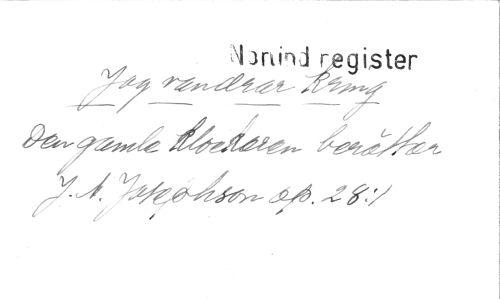 Nonind register
Jag vandrar kring
Den gamle klockaren berättar
J. A. Josephson op. 28:1